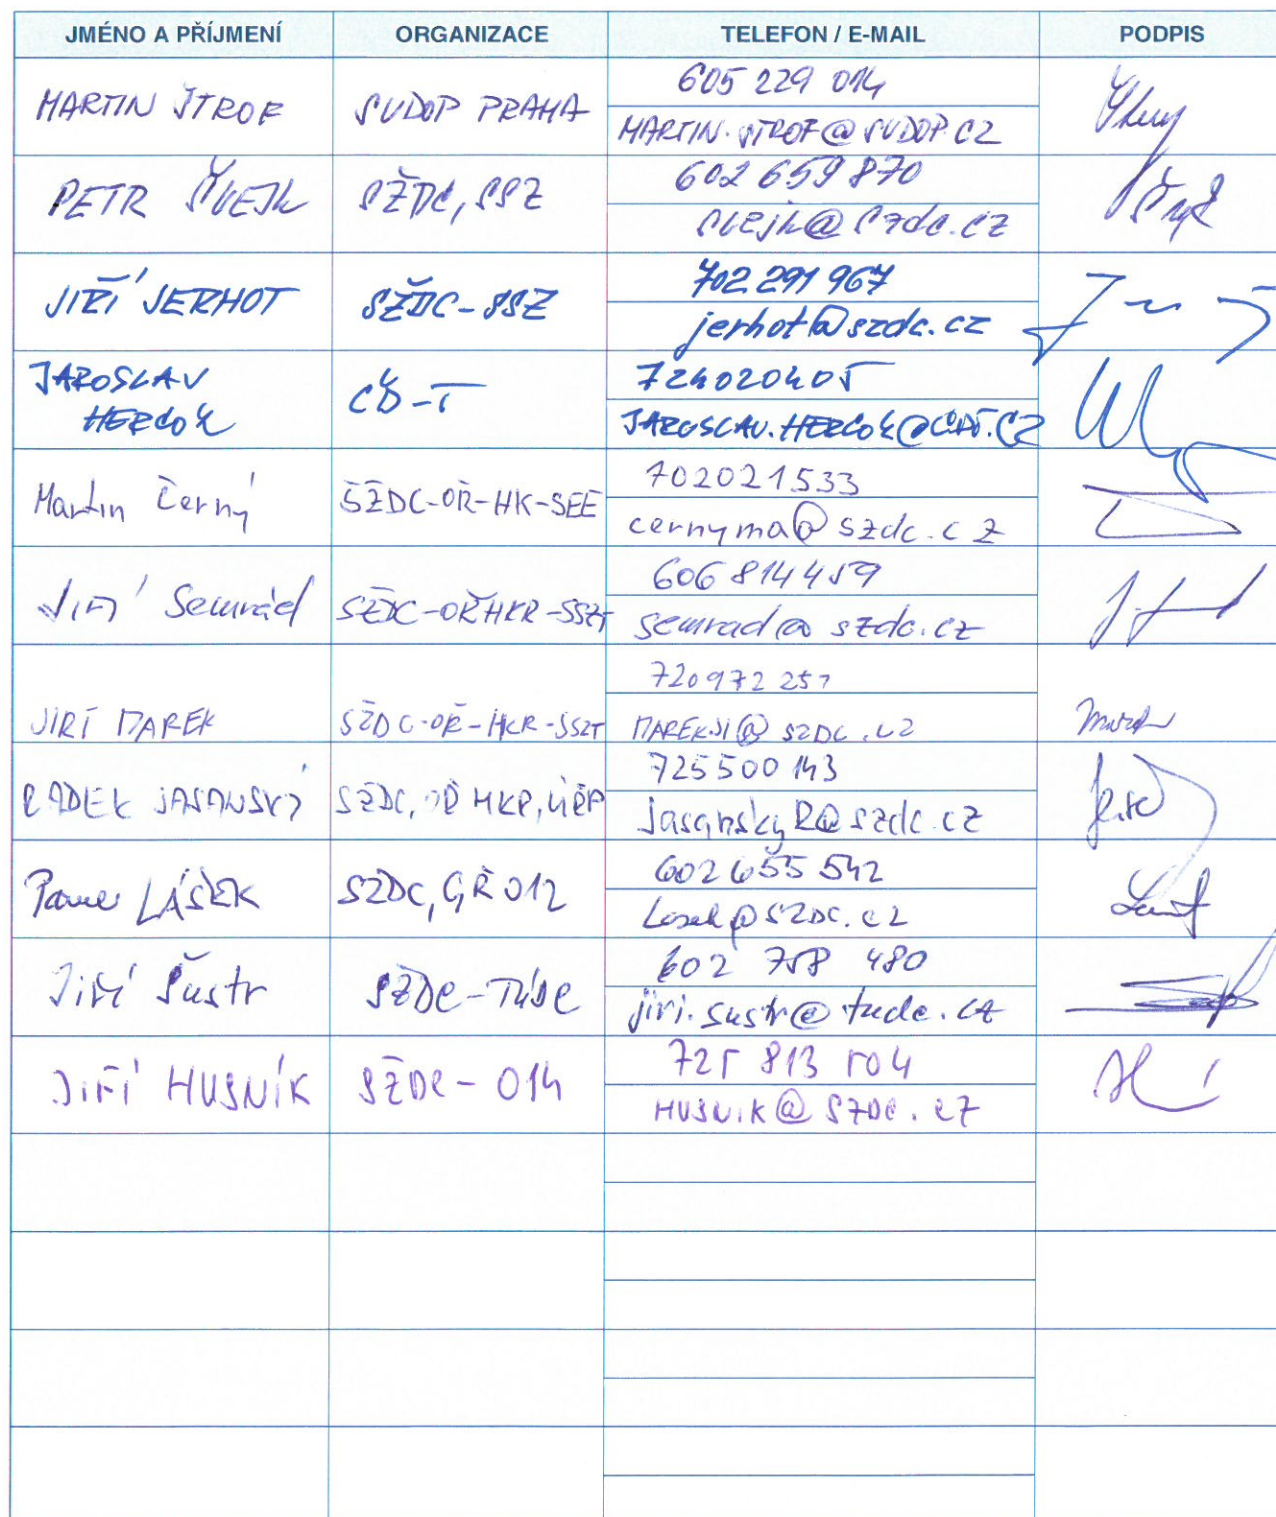 JMÉNO A PŘÍJMENÍ ORGANIZACE TELEFON / E-MAIL PODPIS
MARTIN ŠTROF SUDOP PRAHA 605 229 014
MARTIN.STROF@SUDOP.CZ
PETR ŠVEJK SŽDC, SSZ 602 659 870
SVEJK@szdc.cz
JIŘÍ JERHOT SŽDC-SSZ 702 291 967
jerhot@szdc.cz
JAROSLAV ČD-T 724020405
JAROSLAV.
Martin Černý SŽDC-OŘ-HK-SEE 702021533
cernyma@szdc.cz
Jiří Semrád SŽDC-OŘHKR-SSZT 606 814 459
semrad@szdc.cz
720 972 257
JIŘÍ MAREK SŽDC-OŘ-HKR-SSZT MAREKJI@SZDC.CZ
RADEK JASANSKÝ SŽDC, OŘ HKR, 725 500 143
JasanskyR@szdc.cz
LÁSEK SŽDC, GŘ 012 602 655 542
@SZDC.CZ
Jiří Šustr SŽDC-TÚDC 602 758 480
jiri.sustr@tudc.cz
JIŘÍ HUSNÍK SŽDC - 014 725 813 504
HUSNIK@SZDC.CZ